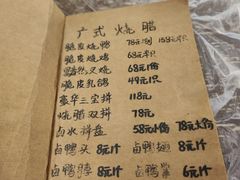 广式烧腊
脆皮烧鸭 78元/例 158元/只
脆皮烧鸡 68元/只
叉烧 68元/份
脆皮乳鸽 49元/只
豪华三宝拼 118元
烧腊双拼 78元
卤水拼盘 58元小份 78元大份
卤鸭头 8元/个 卤鸭翅 8元/个
卤鸭脖 8元/个 卤鸭掌 6元/个